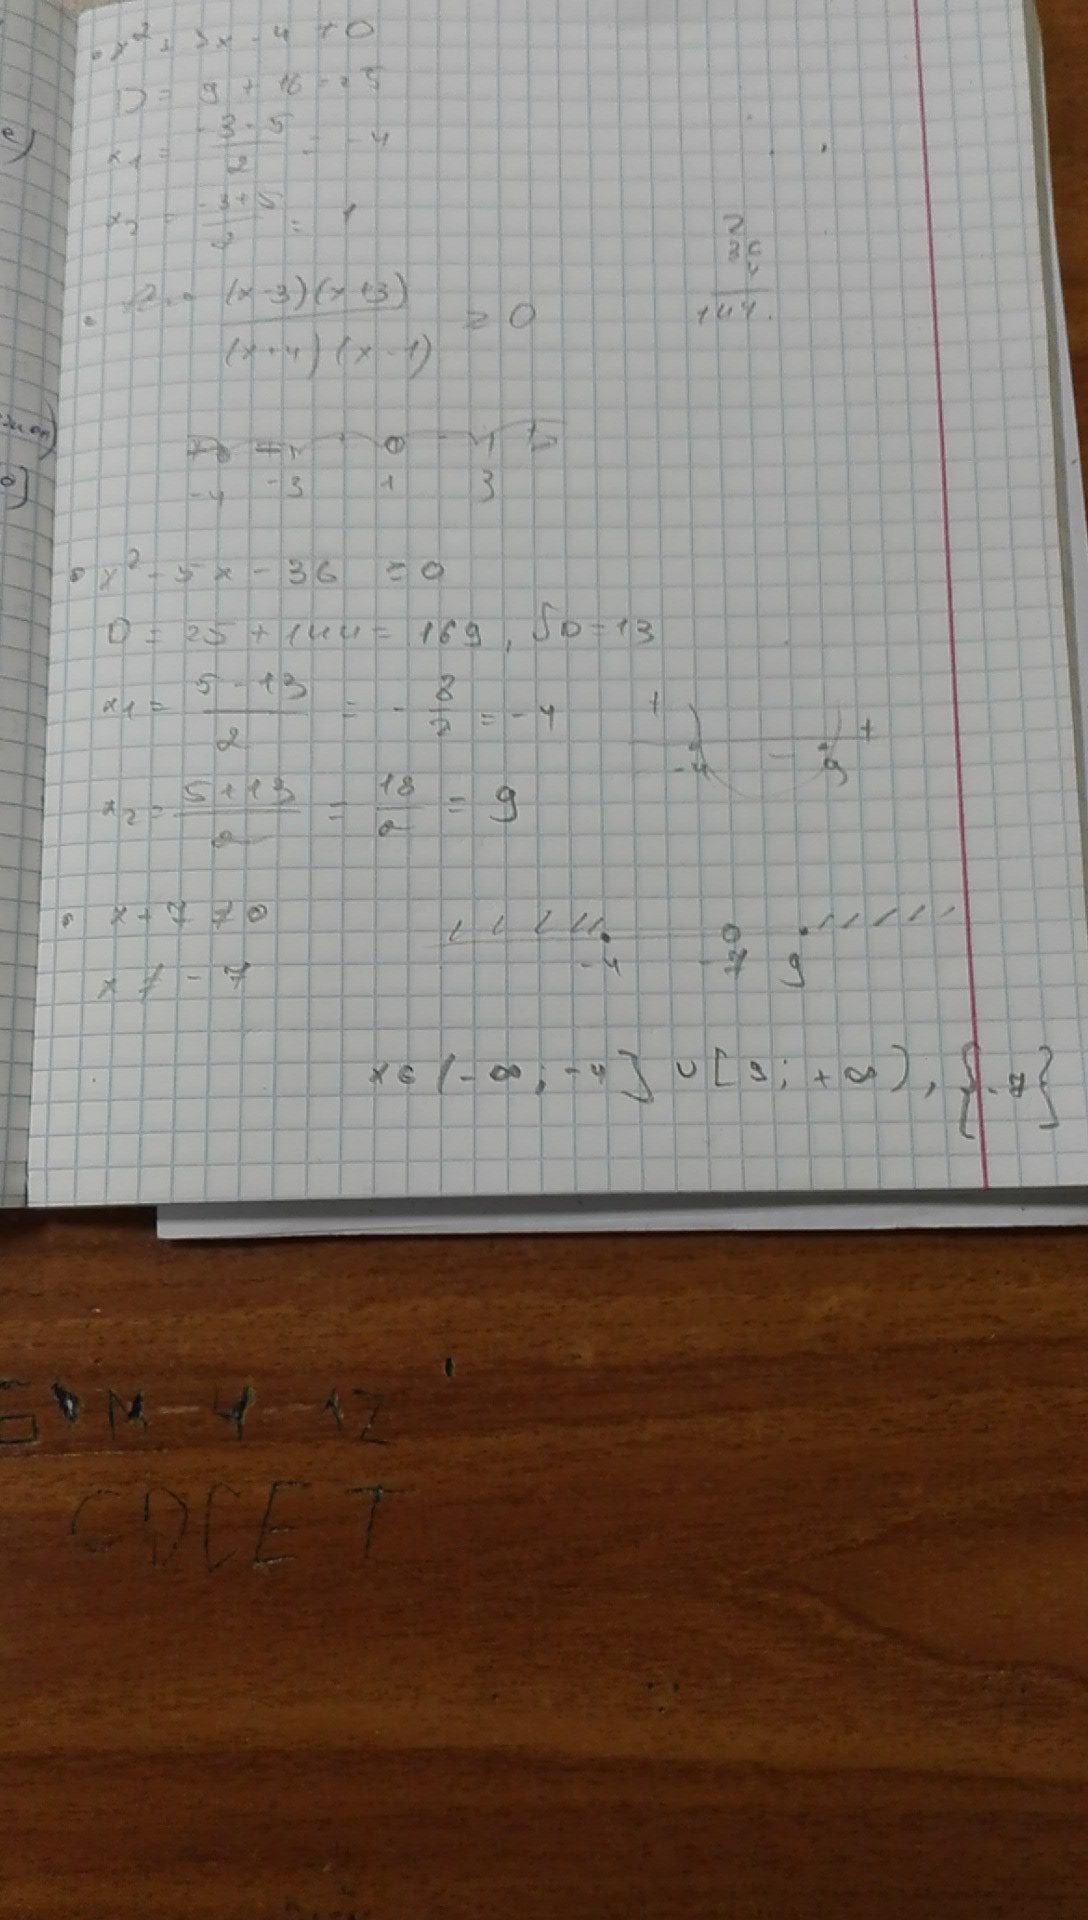 x² + 3x - 4 ≠ 0
D = 9 + 16 = 25
x₁ = (-3-5)/2 = -4
x₂ = (-3+5)/2 = 1
(x-3)(x+3)/(x+4)(x-1) ≥ 0
2
36
4
144
-4 -3 1 3
x² - 5x - 36 = 0
D = 25 + 144 = 169, √D = 13
x₁ = (5-13)/2 = -8/2 = -4
+ -4 - 9 +
x₂ = (5+13)/2 = 18/2 = 9
x + 7 ≠ 0
x ≠ -7
-4 -7 9
x ∈ (-∞; -4] ∪ [9; +∞), {-7}
M-4-12